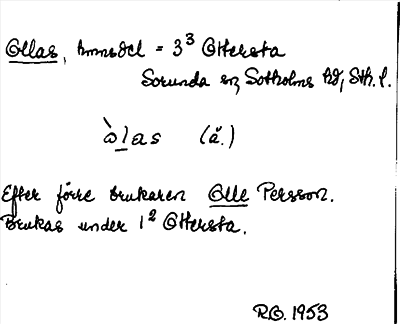 Ollas, hmnsdel = 3³ Ottersta
Sorunda sn, Sotholms hd, Sth. l.
ὼl̲as (å.)
Efter förre brukaren Olle Persson.
Brukas under 1² Ottersta.
R.O. 1953